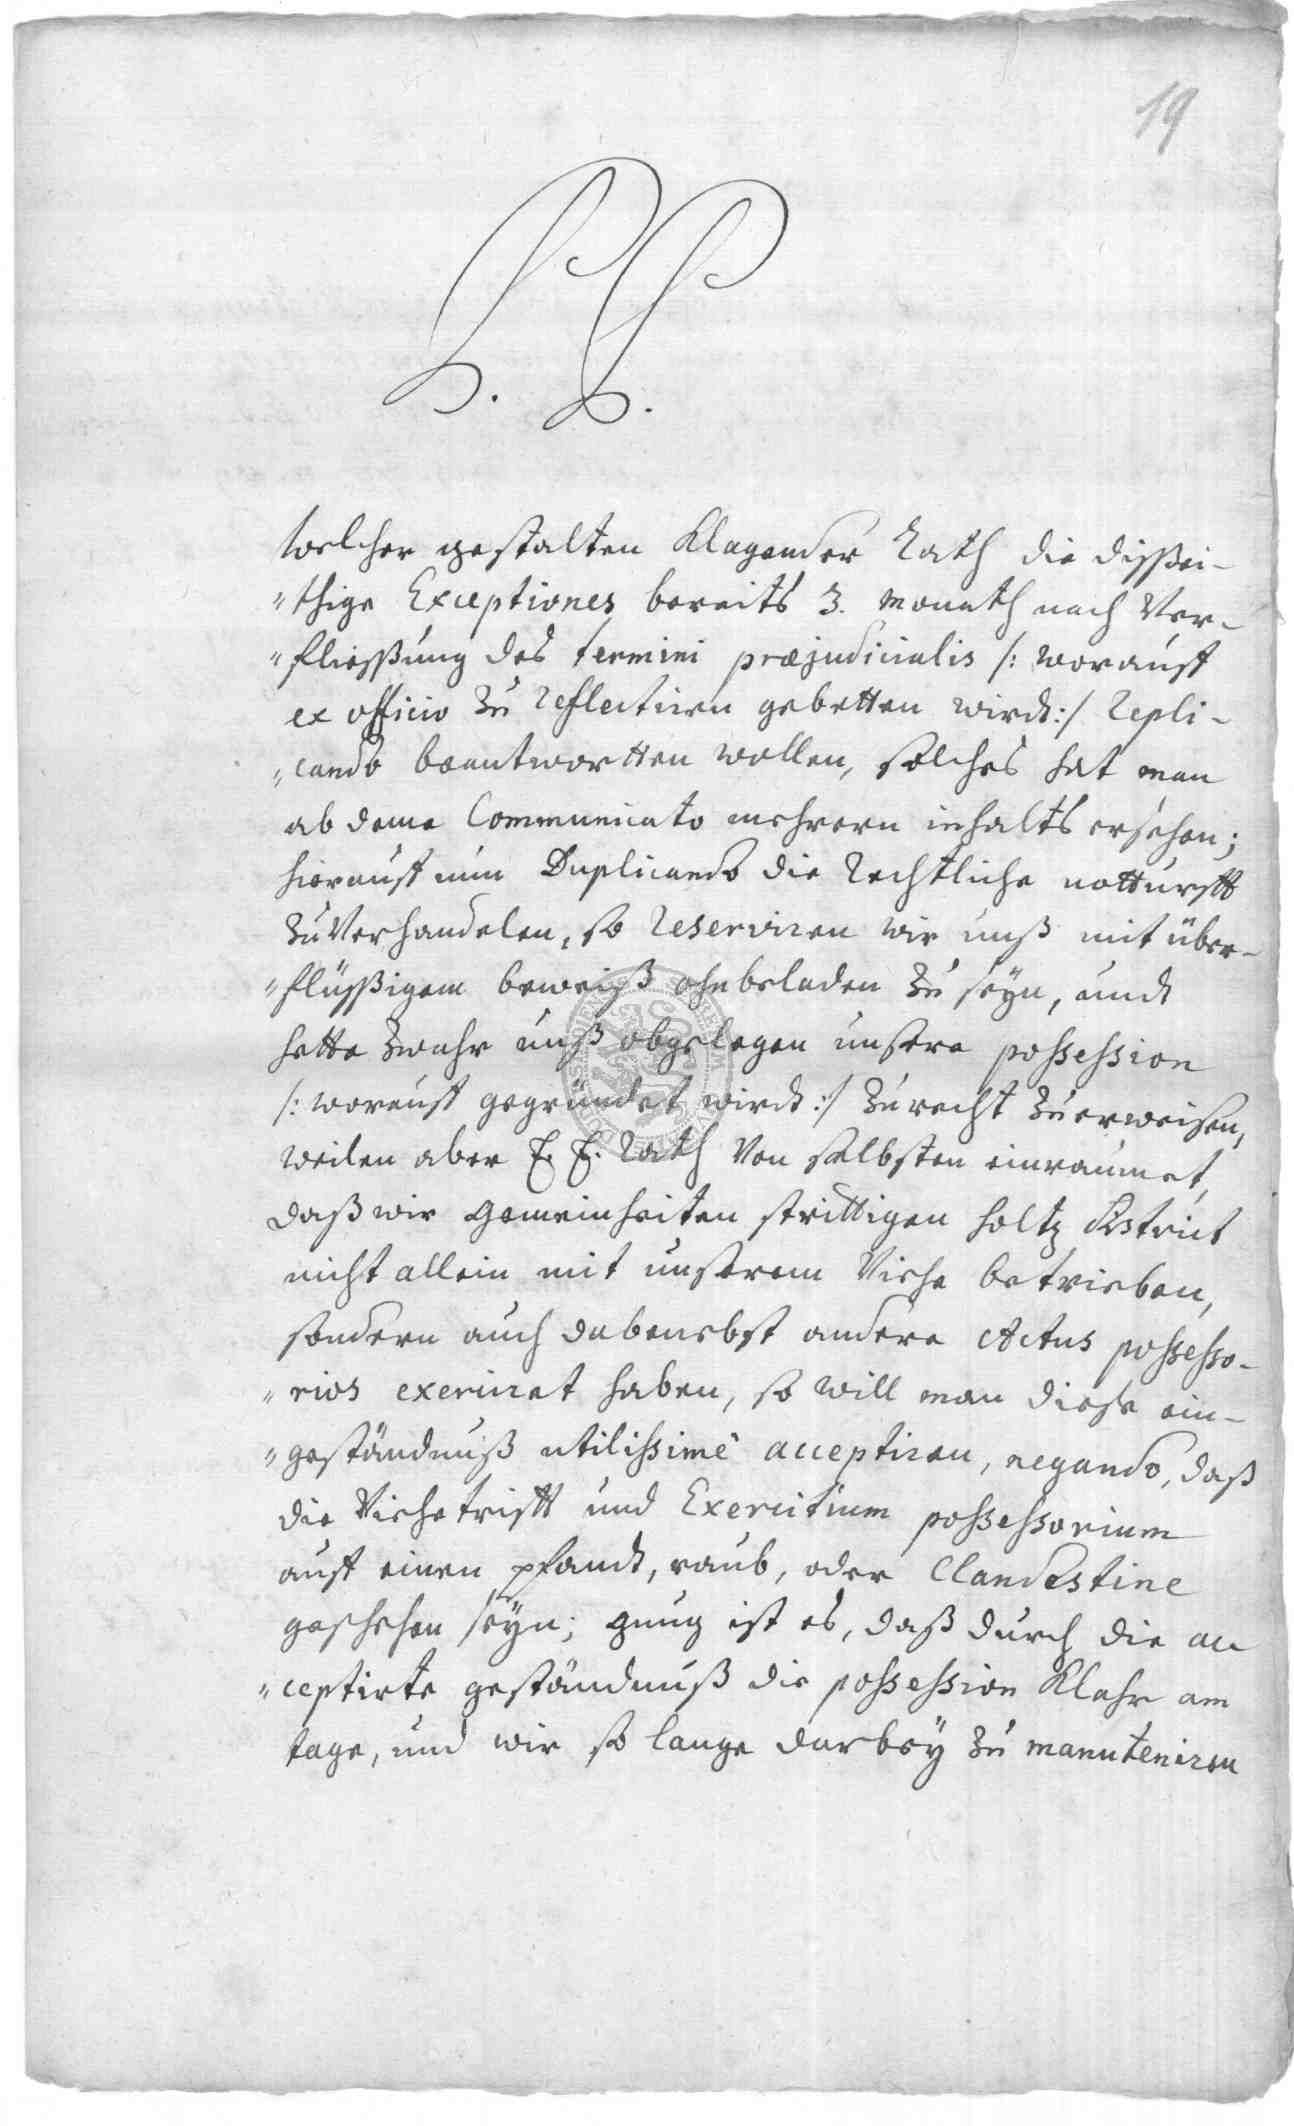 19
P. P.
Welcher gestalten Klagender Rath die dißei-
"thige Exceptiones bereits 3. Monath nach Ver-
"fließung des termini præjudicialis /: worauff
ex officio zu reflectiren gebetten wirdt :/ Repli-
"cando beantwortten wollen, solches hat man
ab deme Communicato mehrern inhalts ersehen;
hierauff nun Duplicando die Rechtliche notturfft
zu Verhandelen, so reserviren wir unß mit über-
"flüßigem beweiß ohnbeladen zu seyn, undt
hette zwahr unß obgelegen unsere possession
/: worauff gegründet wirdt :/ zu recht zu erweisen,
weilen aber E. E. Rath Von selbsten einraumet,
daß wir Gemeinheiten strittigen holtz District
nicht allein mit unserem Viehe betrieben,
sondern auch dabenebst andere Actus possesso-
"rios exerciret haben, so will man diese ein-
"geständnuß utilissimè acceptiren, negando, daß
die Viehetrifft und Exercitium possessorium
auff einen pfandt, raub, oder Clandestine
geschehen seyn; gnug ist es, daß durch die ac
"ceptirte geständnuß die possession Klahr am
tage, und wir so lange darbey zu manuteniren